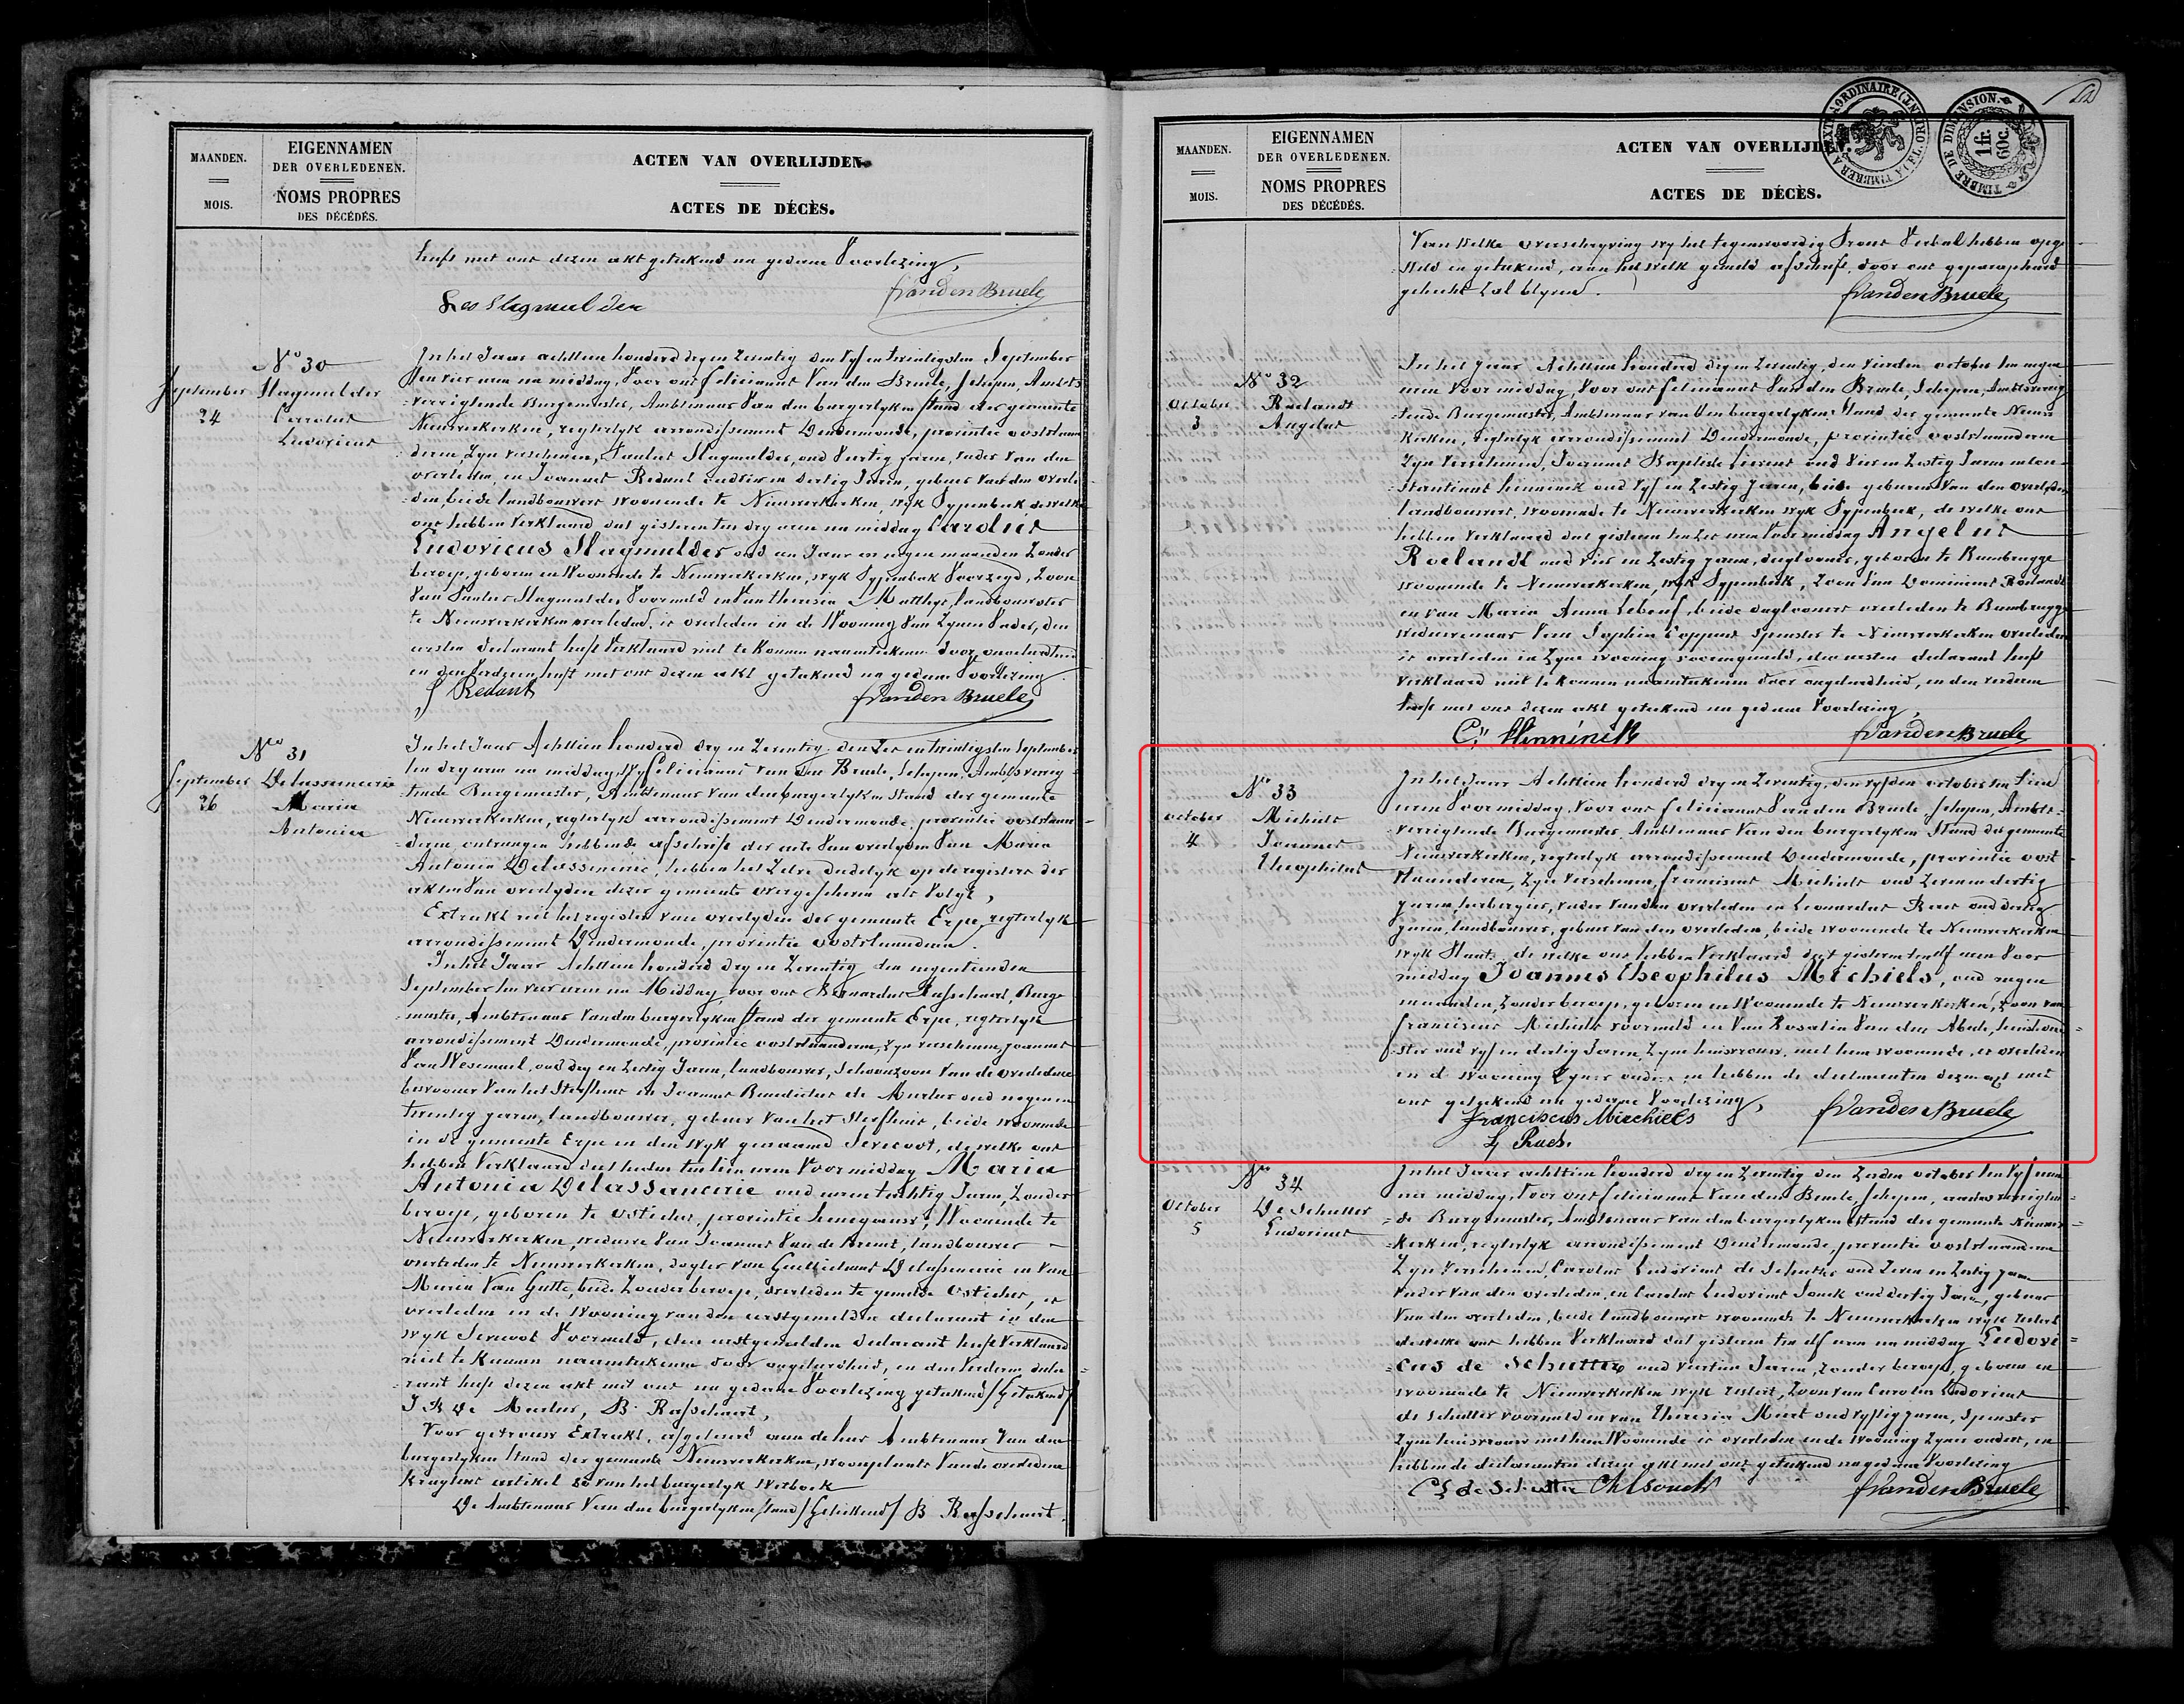 MAANDEN.
MOIS.
EIGENNAMEN
DER OVERLEDENEN.
NOMS PROPRES
DES DÉCÉDÉS.
ACTEN VAN OVERLIJDEN.
ACTES DE DÉCÈS.
heeft met ons dezen akt geteekend na gedane Voorlezing,
Leo Slagmulder
FVandenBruele
September
24
No 30
Slagmulder
Carolus
Ludovicus
In het Jaar achttien honderd dry en Zeventig den vyf en twintigsten September
ten vier uren na middag, Voor ons Felicianus Van den Bruele, Schepen, Ambts
verrigtende Burgemeester, Ambtenaar Van den burgerlyken stand der gemeente
Nieuwerkerken, regterlyk arrondissement Dendermonde, provintie oostvlaan
deren, Zyn verschenen, Paulus Slagmulder, oud Veertig jaren, vader van den
overleden, en Joannes Redant oud in dertig Jaren, gebuer van den overle
den, beide landbouwers woonende te Nieuwerkerken, wyk Sypenbeek, dewelke
ons hebben Verklaard dat gisteren ten dry uren na middag Carolus
Ludovicus Slagmulder oud een Jaar en negen maanden Zonder
beroep, geboren en Woonende te Nieuwerkerken, wyk Sypenbeek Voorzegd, Zoon
Van Paulus Slagmulder Voormeld en Van Theresia Matthys, landbouwster
te Nieuwerkerken overleden, is overleden in de Wooning Van Zynen Vader, den
eersten declarant heeft Verklaard niet te konnen naamteekenen door ongeleerdheid
en den Verderen heeft met ons dezen akt geteekend na gedane Voorlezing
J Redant
FVandenBruele
September
26
No 31
Delassenserie
Maria
Antonia
In het Jaar Achttien honderd dry en Zeventig, den Zes en twintigsten September
ten dry uren na middag, Wy Felicianus Van den Bruele, Schepen, Ambtsverrig
tende Burgemeester, Ambtenaar Van den burgerlyken stand der gemeente
Nieuwerkerken, regterlyk arrondissement Dendermonde, provintie oostvlaan
deren, ontvangen hebbende afschrift der acte Van overlyden Van Maria
Antonia, hebben het Zelve dadelyk op de registers der
akten Van overlyden dezer gemeente overgeschreven als Volgt,
Extrakt uit het register van overlyden der gemeente Erpe, regterlyk
arrondissement Dendermonde, provintie oostvlaanderen.
In het Jaar Achttien honderd dry en Zeventig den negentienden
September ten vier uren na Middag, voor ons Bernardus Rasschaert, Burge
meester, Ambtenaar Van den burgerlyken stand der gemeente Erpe, regterlyk
arrondissement Dendermonde, provintie oostvlaanderen, Zyn verschenen, Joannes
Van Wesemael, oud dry en Zestig Jaren, landbouwer, Schoonzoon Van de overledene
bewooner Van het Sterfhuis en Joannes Benedictus de Meulder oud negen en
twintig jaren, landbouwer, gebuer Van het Sterfhuis, beide woonende
in de gemeente Erpe en den wyk genaamd, dewelke ons
hebben Verklaard dat heden ten tien uren Voormiddag Maria
Antonia Delassancerie oud een en tachtig Jaren, Zonder
beroep, geboren te Ostiches, provintie henegouw, Woonende te
Nieuwerkerken, weduwe Van Joannes Van de, landbouwer
overleden te Nieuwerkerken, dogter van Guillielmus en Van
Maria Van Gutte, beide Zonder beroep, overleden te gemelde Ostiches, is
overleden in de Wooning van den eerstgemelden declarant in den
wyk Voormeld, den eerstgemelden declarant heeft Verklaard
niet te kunnen naamteekenen door ongeleerdheid, en den Verderen decla
rant heeft dezen akt met ons na gedane Voorlezing geteekend / Geteekend /
J B de, B. Rasschaert,
Voor getrouw Extrakt, afgeleverd aan de heer Ambtenaar Van den
burgerlyken stand der gemeente Nieuwerkerken, woonplaats Van de overledene
kragtens artikel 80 van het burgerlyk Wetboek
De Ambtenaar Van den burgerlyken stand / Geteekend / B Rasschaert.
EXTRAORDINAIRE
TIMBRE DE DIMENSION.
1 fr.
60c.
MAANDEN.
MOIS.
EIGENNAMEN
DER OVERLEDENEN.
NOMS PROPRES
DES DÉCÉDÉS.
ACTEN VAN OVERLIJDEN.
ACTES DE DÉCÈS.
Van Welke overschryving wy het tegenwoordig Proces Verbaal hebben opge
steld en geteekend, aan hetwelk gemeld afschrift, door ons geparapheerd
gehecht Zal blyven.
FVandenBruele
October
3
No 32
Roelandt
Angelus
In het Jaar Achttien honderd dry en Zeventig, den vierden october ten negen
uren Voor middag, Voor ons Felicianus Van den Bruele, Schepen, Ambtsverrig
tende Burgemeester, Ambtenaar van den burgerlyken Stand der gemeente Nieuwer
kerken, regterlyk arrondissement Dendermonde, provintie oostvlaanderen
Zyn Verschenen, Joannes Baptiste oud Vier en Zestig Jaren en Con
stantinus oud vyf en Zestig Jaren, beide gebueren Van den overleden
landbouwers, woonende te Nieuwerkerken wyk Sypenbeek, de welke ons
hebben Verklaard dat gisteren ten Zes uren Voor middag Angelus
Roelandt oud Vier en Zestig Jaren, daglooner, geboren te Bambrugge
woonende te Nieuwerkerken, wyk Sypenbeek, Zoon Van Dominicus Roelandt
en van Maria Anna Lebeuf, beide daglooners overleden te Bambrugge
weduwenaar Van Sophia Coppens Spinster te Nieuwerkerken overleden
is overleden in Zyne wooning voorengemeld, den eersten declarant heeft
verklaard niet te konnen naamteekenen door ongeleerdheid, en den verderen
heeft met ons dezen akt geteekend na gedane Voorlezing,
FVandenBruele
October
4
No 33
Michiels
Joannes
Theophilus
In het Jaar Achttien honderd dry en Zeventig, den vyfden october ten tien
uren Voormiddag, Voor ons Felicianus Van den Bruele Schepen, Ambts=
verrigtende Burgemeester, Ambtenaar Van den burgerlyken Stand der gemeente
Nieuwerkerken, regterlyk arrondissement Dendermonde, provintie oost
vlaanderen, Zyn verschenen, Franciscus Michiels oud Zeven en dertig
Jaren, herbergier, vader van den overleden en Leonardus oud dertig
Jaren, landbouwer, gebuer van den overleden, beide woonende te Nieuwerkerken
wyk, de welke ons hebben Verklaard dat gisteren ten elf uren Voor
middag Joannes Theophilus Michiels, oud negen
maanden, Zonder beroep, geboren en Woonende te Nieuwerkerken, Zoon van
Franciscus Michiels voormeld en Van Rosalia Van den Abeele, huishoud=
ster oud vyf en dertig Jaren, Zyne huisvrouw, met hem woonende, is overleden
in de wooning Zyner ouders, en hebben de declaranten dezen akt met
ons geteekend na gedane Voorlezing,
Franciscus Miechiels
FVandenBruele
October
5
No 34
De Schutter
Ludovicus
In het Jaar achttien honderd dry en Zeventig den Zesden october ten Vyf uren
na middag, Voor ons Felicianus Van den Bruele, Schepen, ambtsverrigten=
de Burgemeester, Ambtenaar van den burgerlyken stand der gemeente Nieuwer=
kerken, regterlyk arrondissement Dendermonde, provintie oostvlaanderen
Zyn Verschenen, Carolus Ludovicus de Schutter oud Zeven en Zestig jaren
vader van den overleden, en Carolus Ludovicus Sonck oud dertig Jaren, gebuer
Van den overleden, beide landbouwers woonende te Nieuwerkerken wyk
dewelke ons hebben Verklaard dat gisteren ten elf uren na middag Ludovi=
cus de Schutter oud veertien Jaren, Zonder beroep, geboren en
woonende te Nieuwerkerken wyk, Zoon van Carolus Ludovicus
de Schutter voormeld en van Theresia oud vyftig jaren, Spinster
Zyne huisvrouw met hem Woonende is overleden in de wooning Zyner ouders, en
hebben de declaranten dezen akt met ons geteekend na gedane Voorlezing
CL de Schutter
Ch L Sonck
FVandenBruele